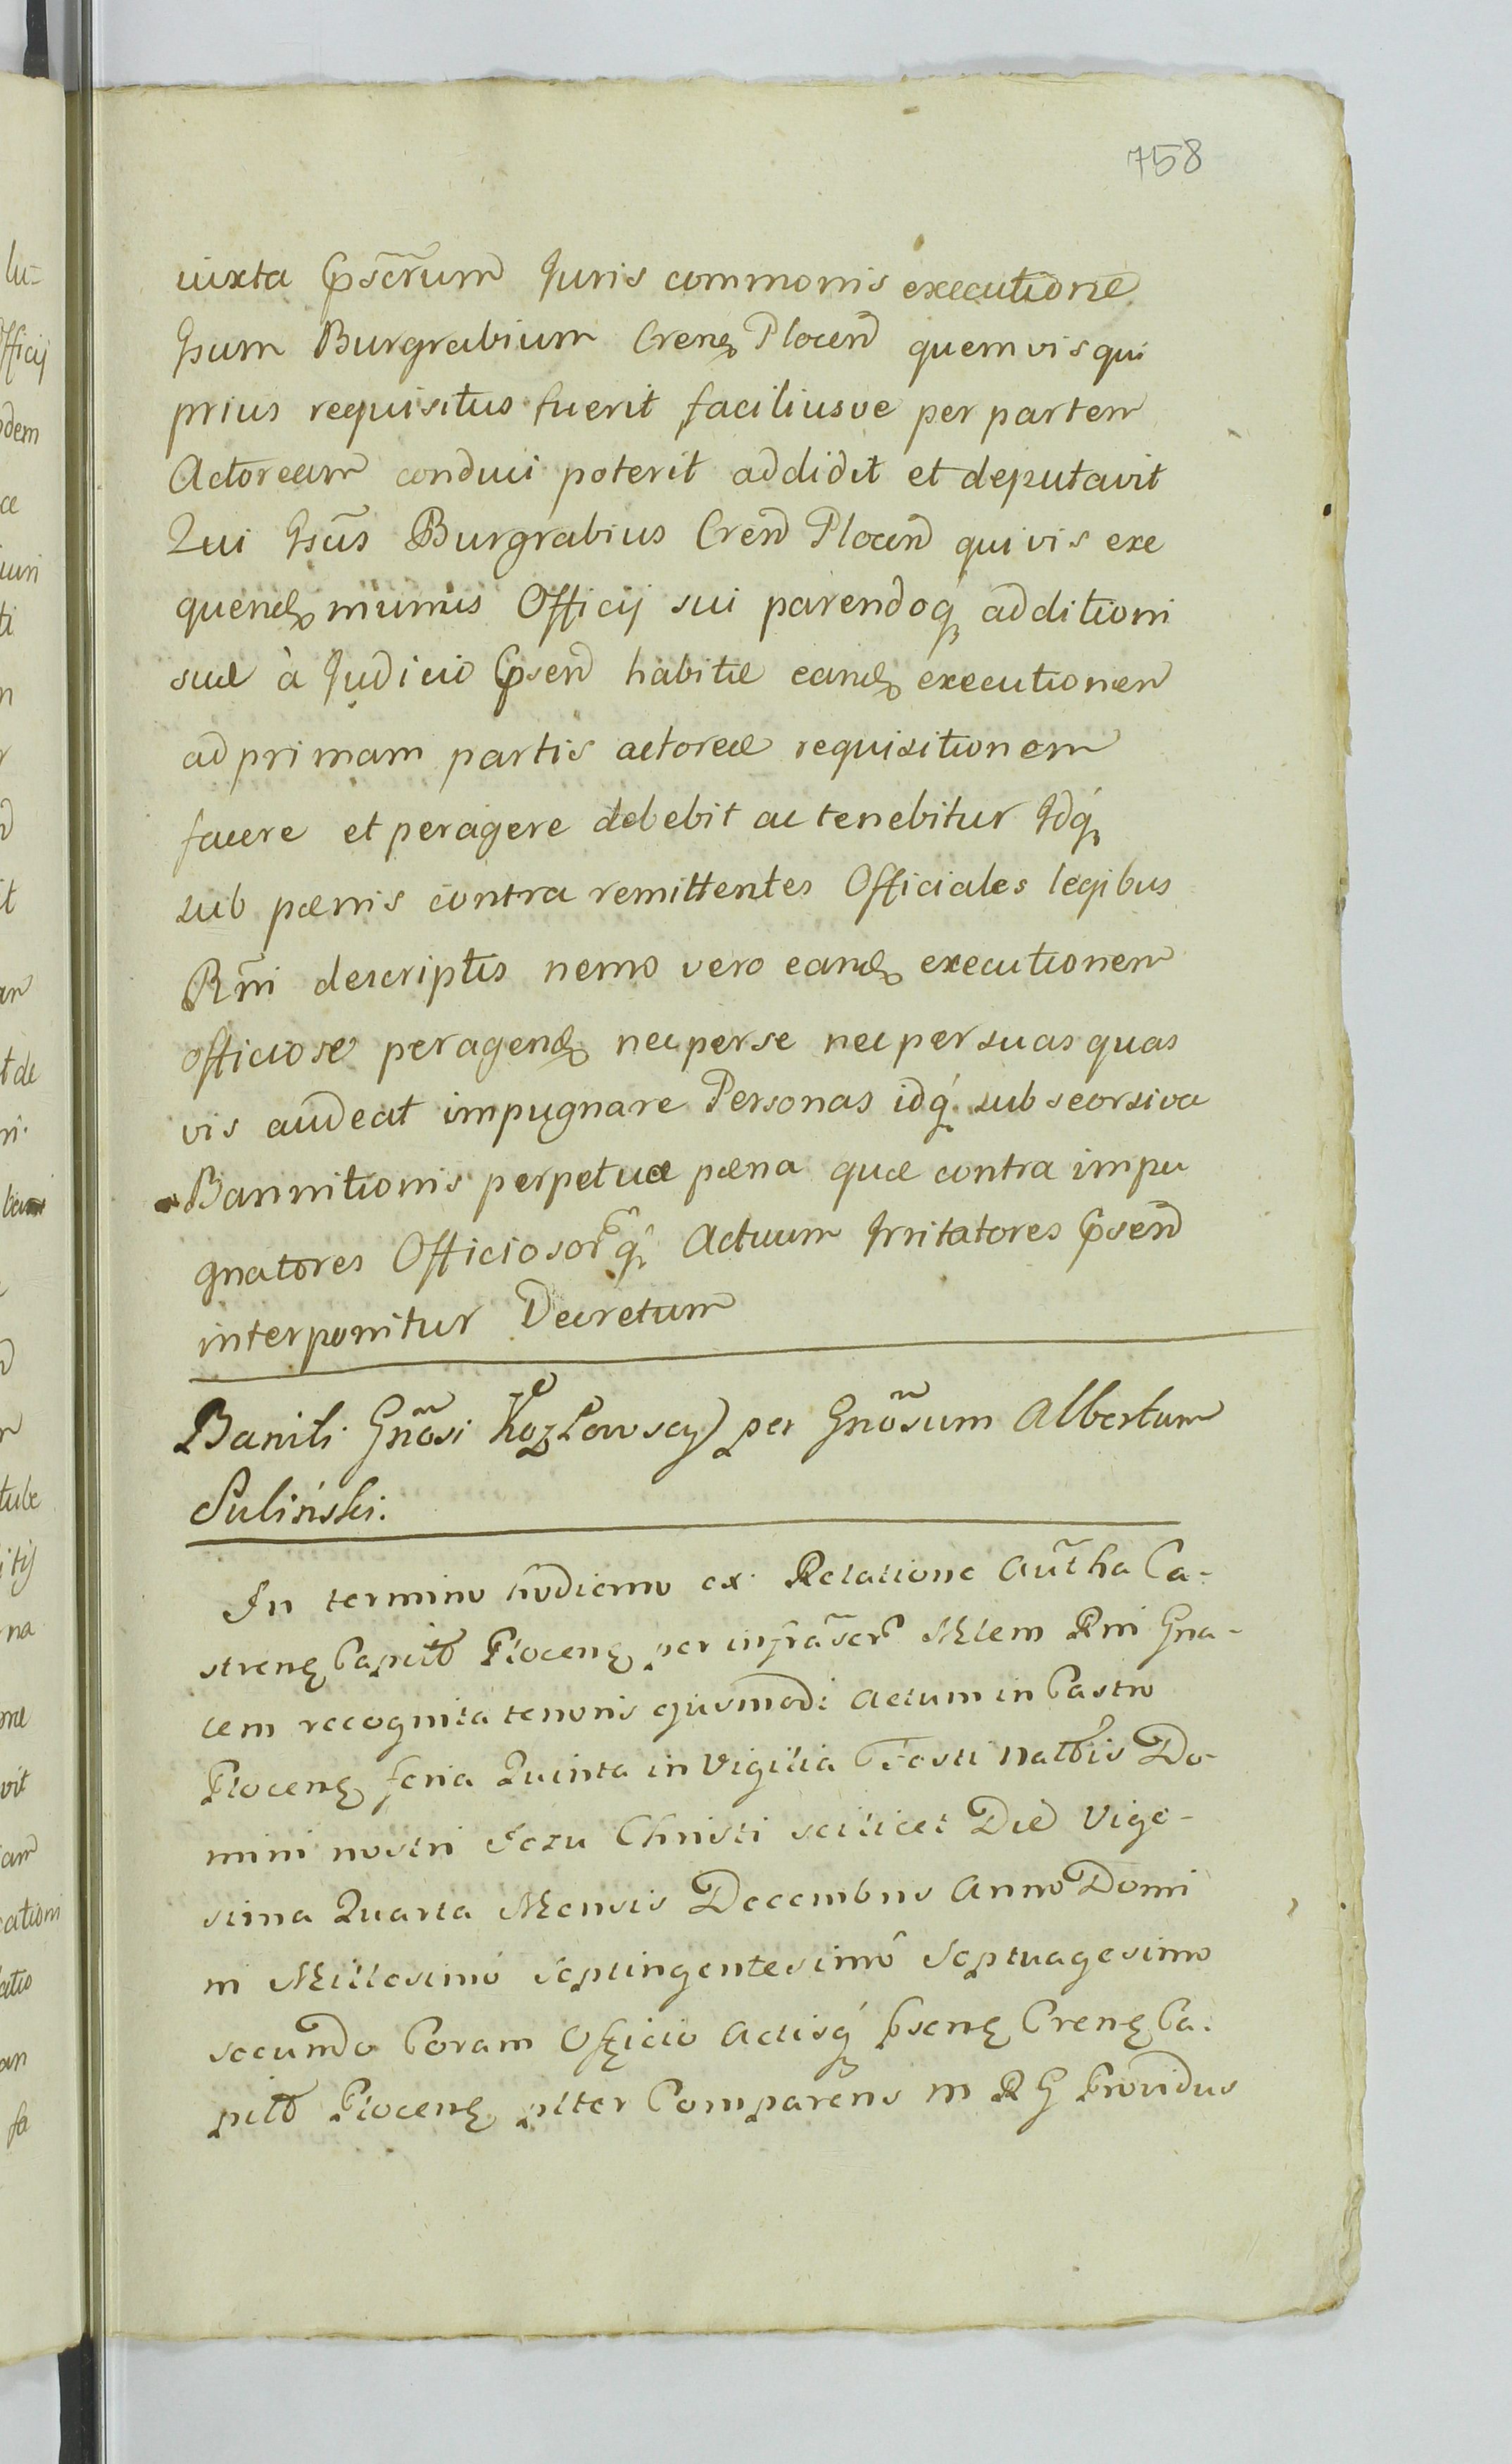 758
iuxta Pscrum Juris commonis executione
Gsum Burgrabium Crens Plocen quemvis qui
prius requisitus fuerit faciliusve per partem
Actoream conduci poterit addidit et deputavit
Qui Gsus Burgrabius Cren Plocen quivis exe
quend munus Officij sui parendoq additioni
suæ à Judicio Psen habitæ eand executionem
ad primam partis actoreæ requisitionem
facere et peragere debebit ac tenebitur Idq
sub pœnis contra remittentes Officiales legibus
Rni descriptis nemo vero eand executionem
officiose peragend nec per se nec per suas quas
vis audeat impugnare Personas idq sub seorsiva
Bannitionis perpetuæ pœna quæ contra impu
gnatores Officiosorq Actuum Irritatores Psen
interponitur Decretum
Banit: Gnosi Kozłowscy per Gnosum Albertum
Suliński.
In termino hodierno ex Relatione Autha Ca-
strens Capitt Plocens per infrascr Mlem Rni Gna-
lem recognita tenoris ejusmodi Actum in Castro
Plocens feria Quinta in Vigilia Festi Natlis Do-
mini nostri Jezu Christi scilicet Die Vige-
sima Quarta Mensis Decembris Anno Domi
ni Millesimo Septingentesimo Septuagesimo
secundo Coram Officio Actisq Psens Crens Ca-
pitt Plocens plter Comparens M R G Providus